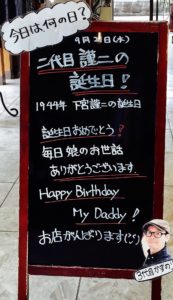 今日は何の日？
9月2日(木)
二代目 謹二の
誕生日！
1944年 下宮謹二の誕生日
誕生日おめでとう？
毎日 娘のお世話
ありがとうございます
Happy Birthday
My Daddy！
お店がんばります
3代目かずの